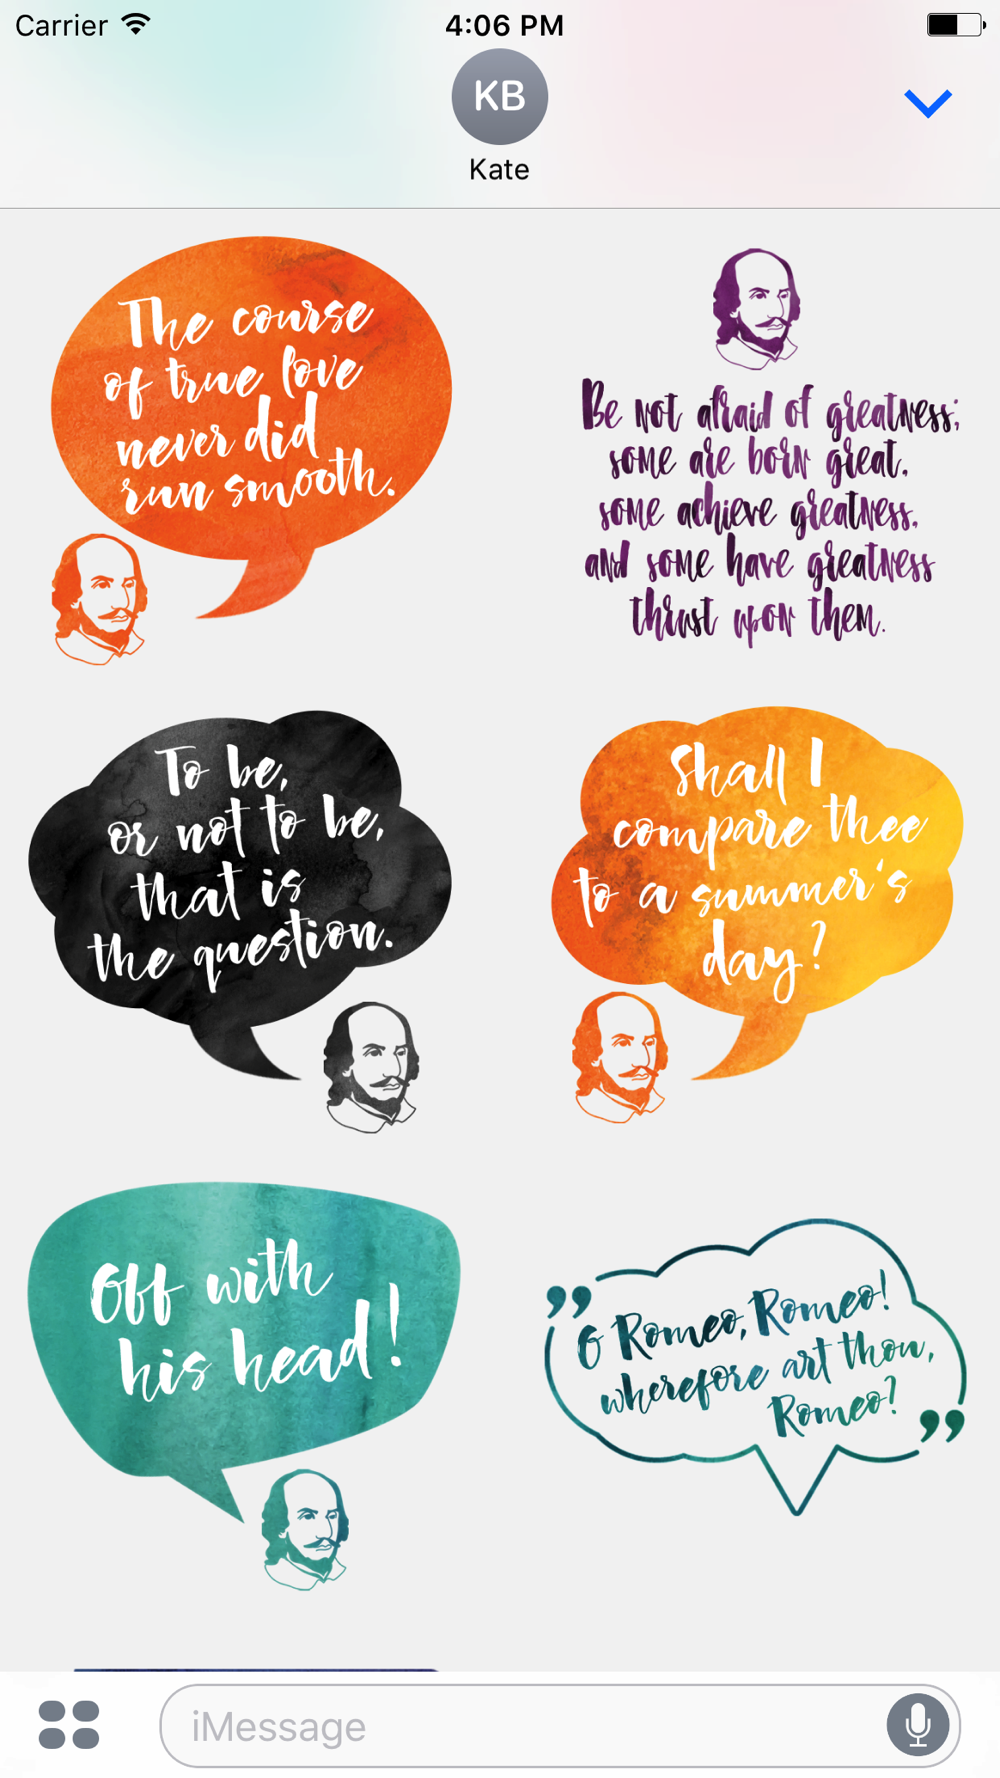 Carrier 4:06 PM
KB
Kate
The course
of true love
never did
run smooth.
Be not afraid of greatness;
some are born great,
some achieve greatness,
and some have greatness
thrust upon them.
To be,
or not to be,
that is
the question.
Shall I
compare thee
to a summer's
day?
Off with
his head!
”
O Romeo, Romeo!
wherefore art thou,
Romeo?
”
iMessage